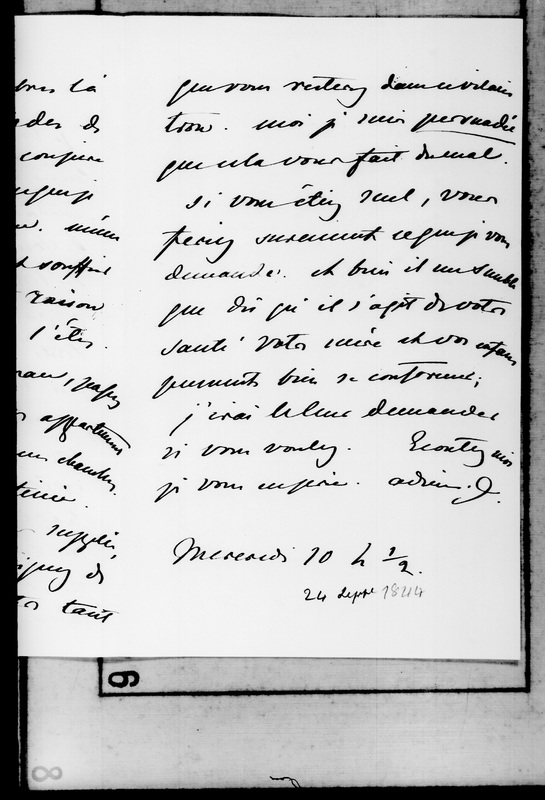 bres là
des de
conjure
ce que je
même
souffrir
raison
l'êtes.
pas
appartement
chambre.
supplie,
de
tant
que vous restiez dans ce vilain
trou. moi je suis persuadée
que cela vous fait du mal.
si vous étiez seul, vous
feriez surement ce que je vous
demande. et bien il me semble
que dès qu'il s'agit de votre
santé votre mère et vos enfans
peuvent bien se conformer;
j'irai le leur demander
si vous voulez. Ecoutez moi
je vous en prie. adieu. J.
Mercredi 10 h 1/2.
24 septre 1844
9
8